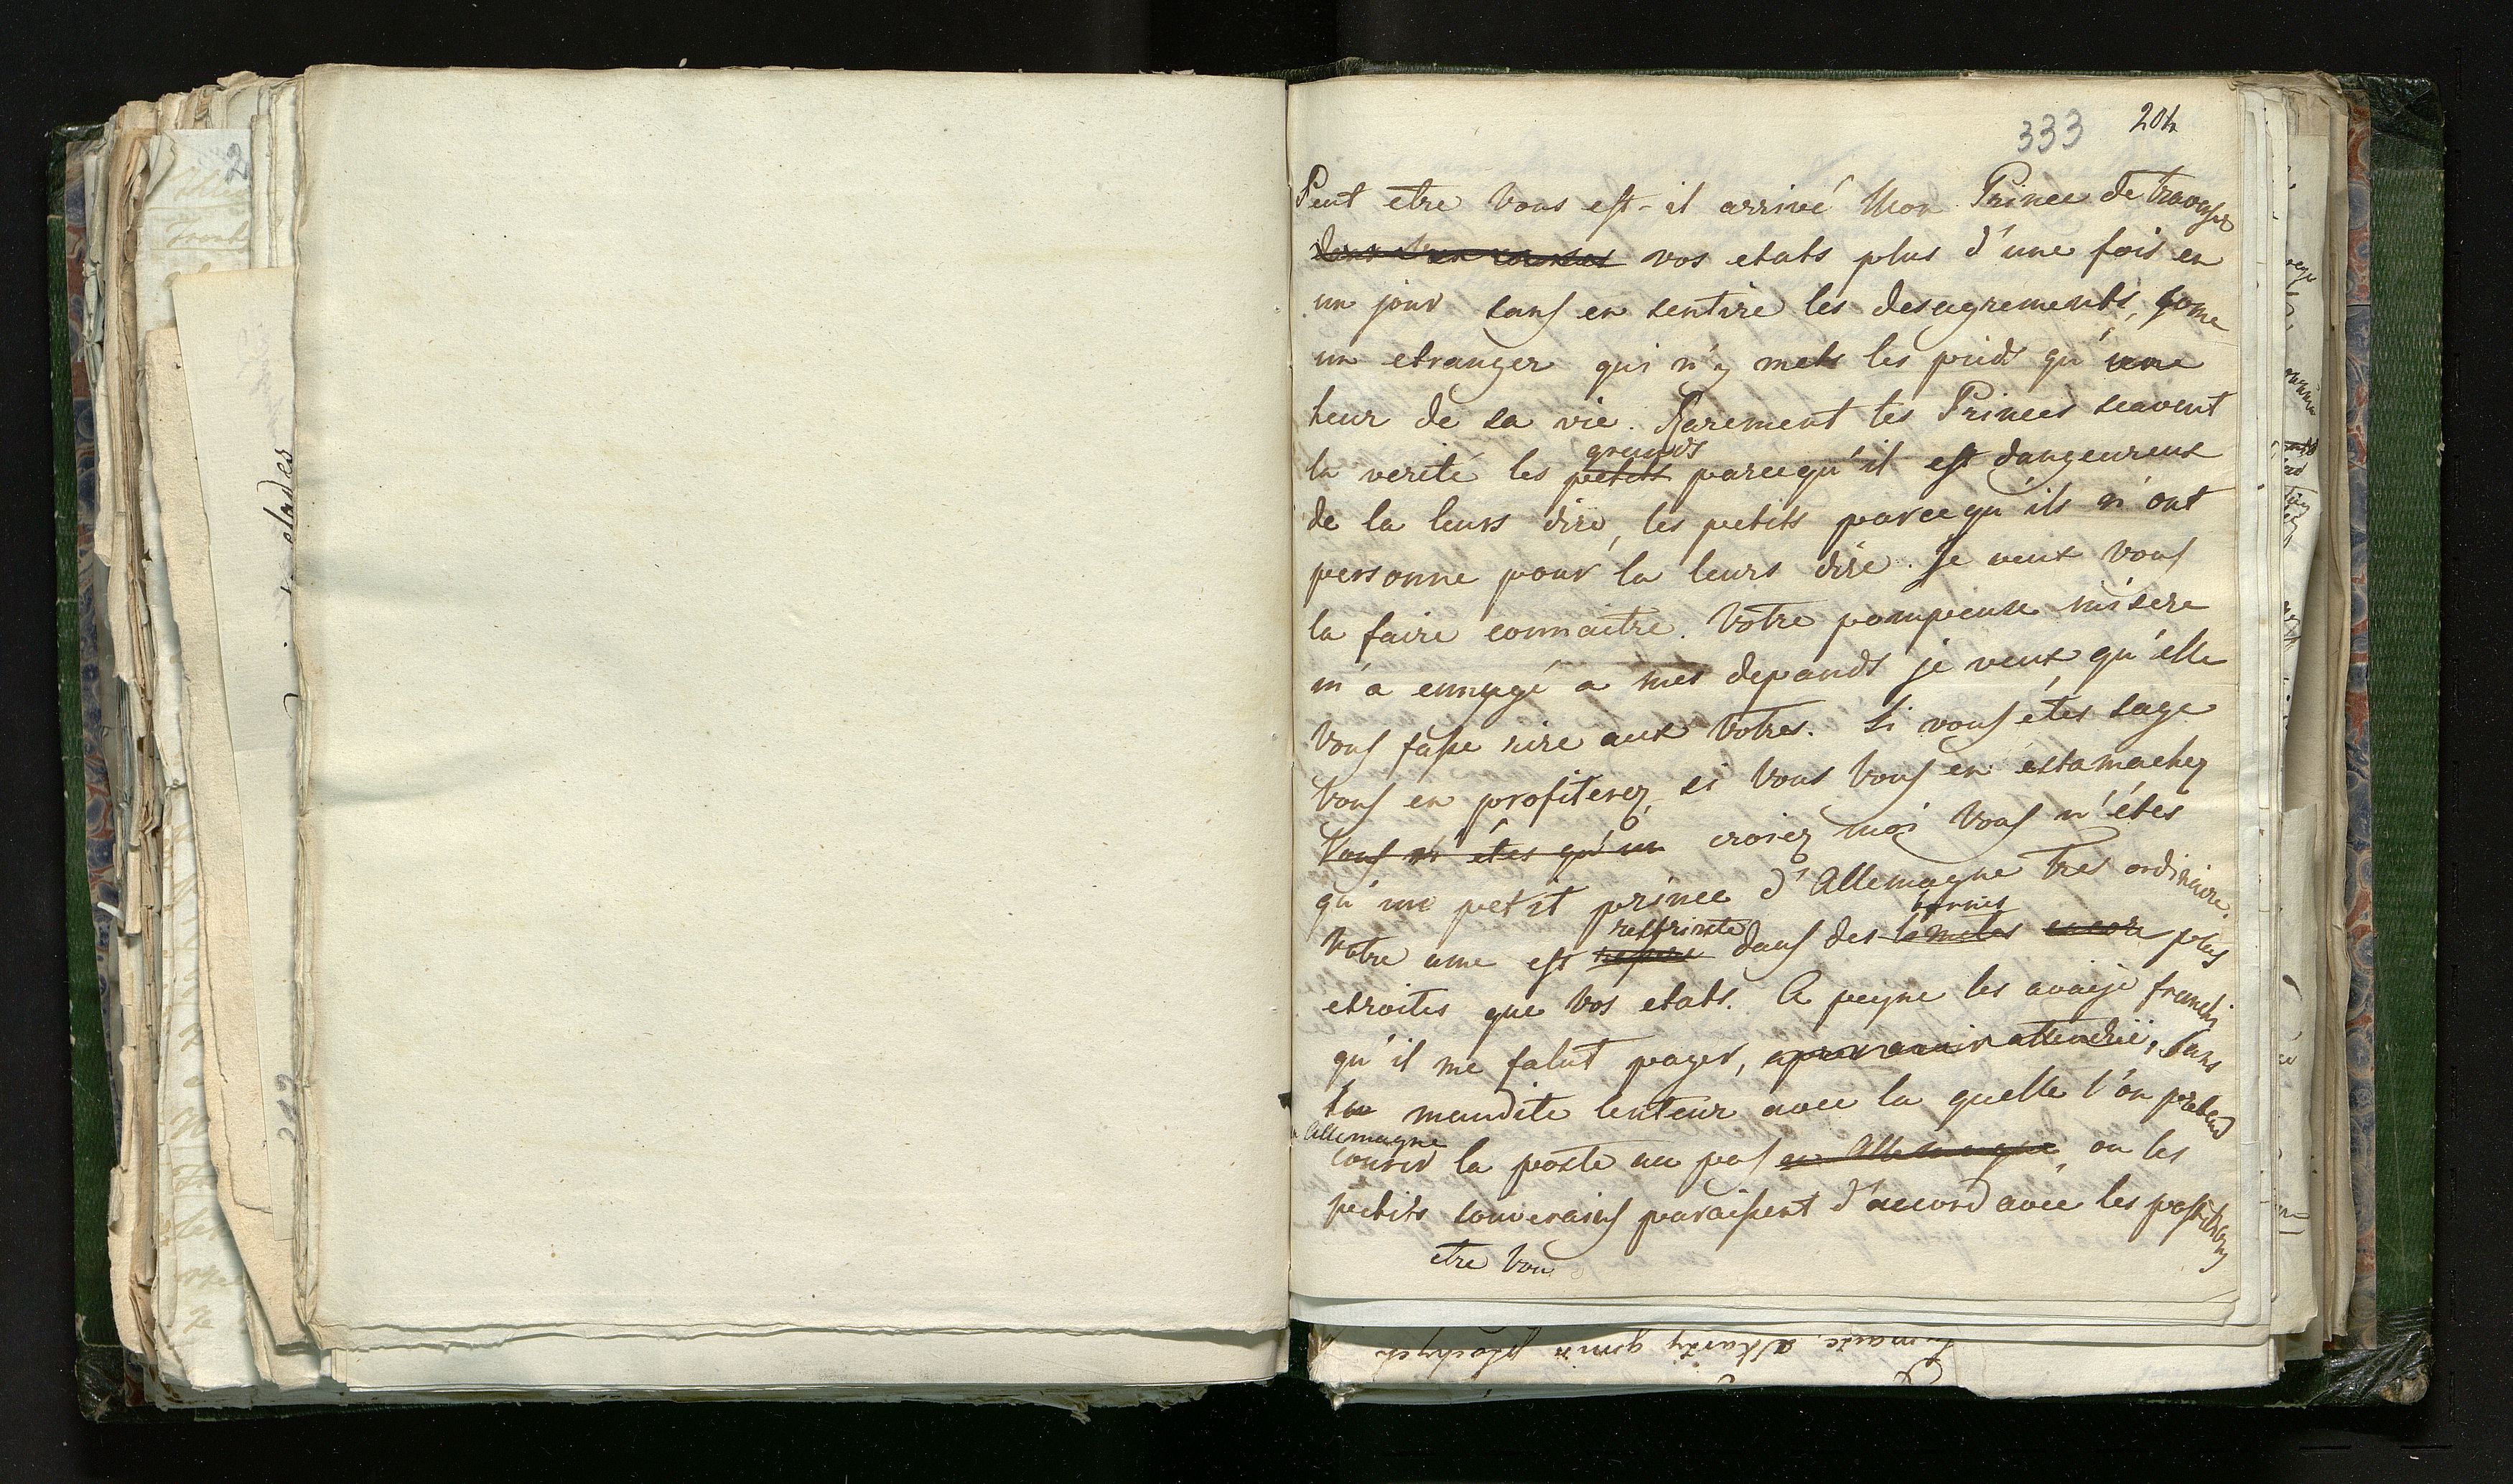 333 204
Peut etre vous est-il arrivé Mon Prince de traverser
vos etats plus d'une fois en
un jour sans en sentire les desagrements, come
un etranger qui n'y mets les pieds qu'une
heur de sa vie. Rarement les Princes scavent
grands
la verité les petits parcequ'il est dangeureux
de la leurs dire, les petits parcequ'ils n'ont
personne pour la leurs dire. Je veux vous
la faire connaitre. Votre pompeuse misere
m'a ennuyé a mes depands je veux qu'elle
vous fasse rire aux votres. Si vous étes sage
vous en profiterez, si vous vous en estamachez
vous n'étes qu'un croiez moi vous n'étes
qu'un petit prince d'Allemagne tres ordinaire.
restrinte bornes
Votre ame est dans des limites encore plus
etroites que vos etats. A peyne les avaije franchi
qu'il me falut payer, apres avoir attendrie, sans
la maudite lenteur avec la quelle l'on pretend
Allemagne
courir la poste au pas en Allemagne, ou les
petits souverains paraissent d'accord avec les postillons
etre vou